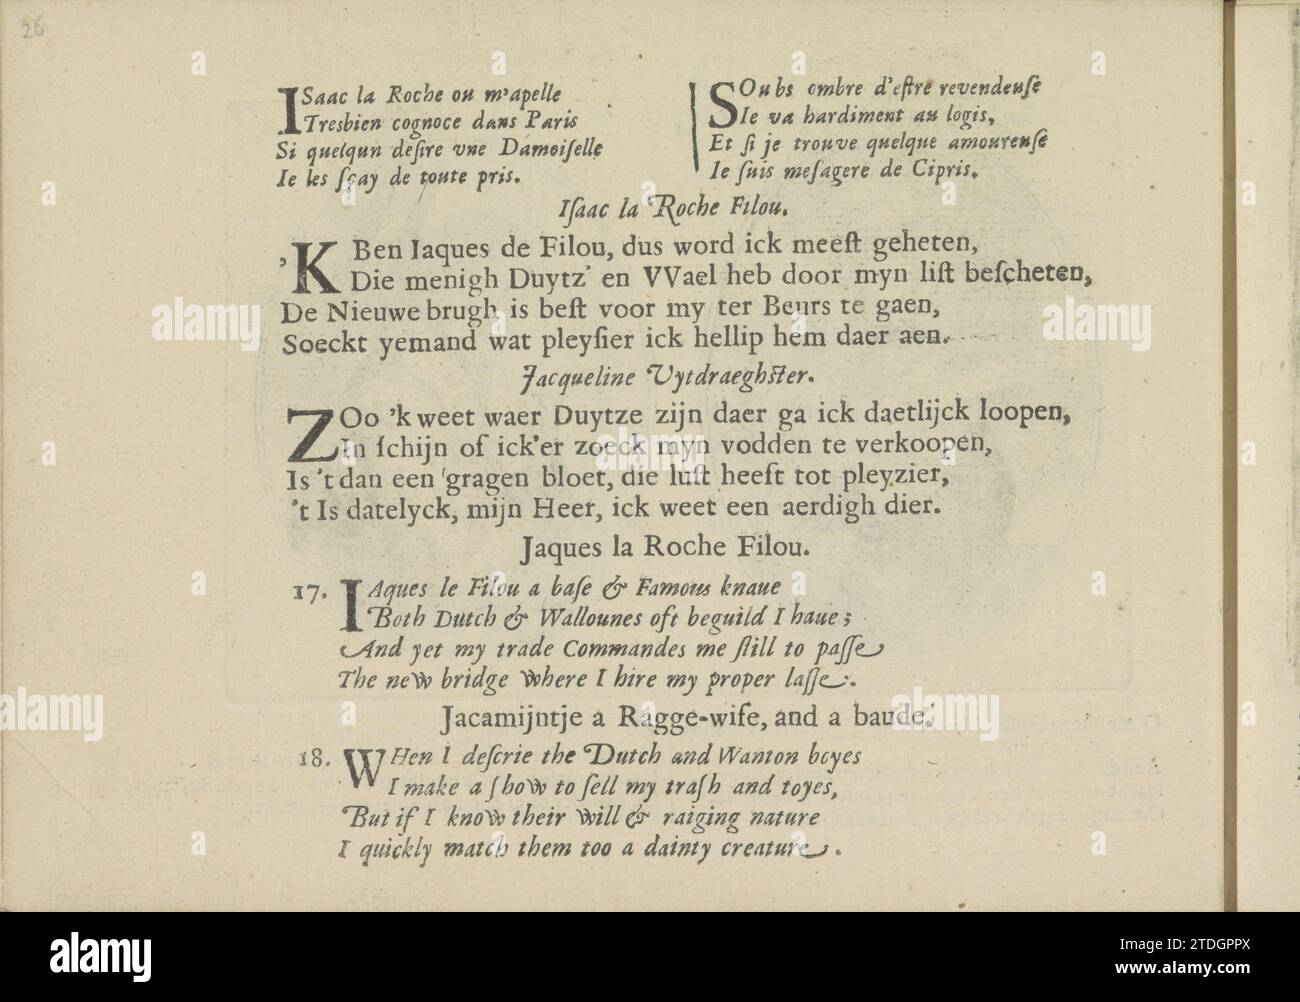 26
ISaac la Roche ou m'apelle
Tresbien cognoce dans Paris
Si quelqun deſire vne Damoiſelle
Ie les ſçay de toute pris.
SOubs ombre d'eſtre revendeuſe
Ie va hardiment au logis,
Et ſi je trouve quelque amoureuſe
Ie ſuis meſagere de Cipris.
Iſaac la Roche Filou.
'K Ben Iaques de Filou, dus word ick meeſt geheten,
Die menigh Duytz' en VVael heb door myn liſt beſcheten,
De Nieuwe brugh is beſt voor my ter Beurs te gaen,
Soeckt yemand wat pleyſier ick hellip hem daer aen.
Jacqueline Vytdraeghſter.
ZOo 'k weet waer Duytze zijn daer ga ick daetlijck loopen,
In ſchijn of ick'er zoeck myn vodden te verkoopen,
Is 't dan een gragen bloet, die luſt heeft tot pleyzier,
't Is datelyck, mijn Heer, ick weet een aerdigh dier.
Jaques la Roche Filou.
17. IAques le Filou a baſe & Famous knaue
Both Dutch & Wallounes oft beguild I haue;
And yet my trade Commandes me ſtill to paſſe
The new bridge where I hire my proper laſſe.
Jacamijntje a Ragge-wife, and a baude.
18. WHen I deſcrie the Dutch and Wanton boyes
I make a ſhow to ſell my traſh and toyes,
But if I know their will & raiging nature
I quickly match them too a dainty creature.
alamy
Image ID: 2TDGPPX
www.alamy.com